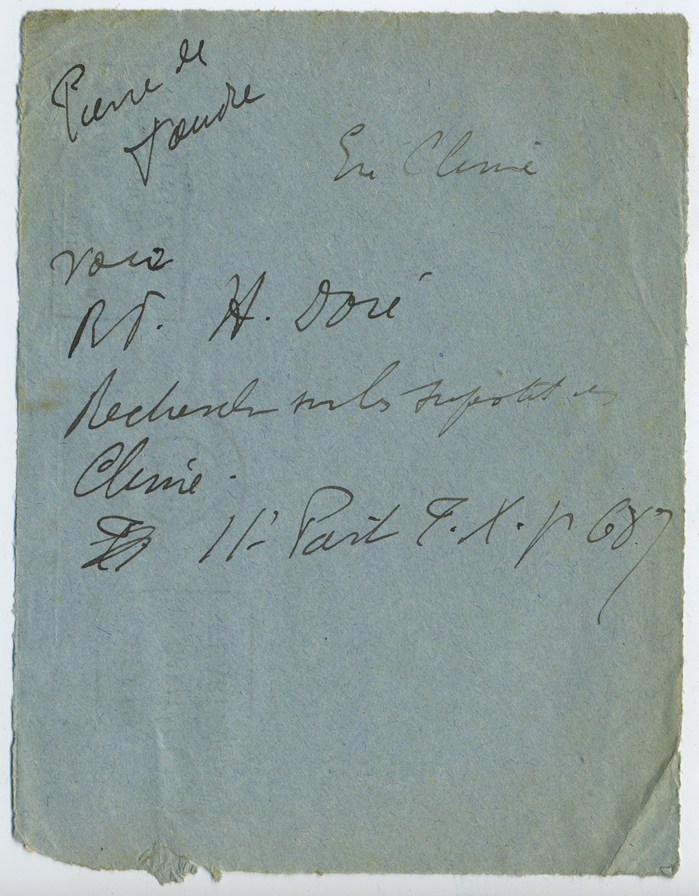 Pierre de
foudre
En Chine
voir
R. P. H. Doré
Recherches sur les superstit. en
Chine.
II e Part T. X. p 687